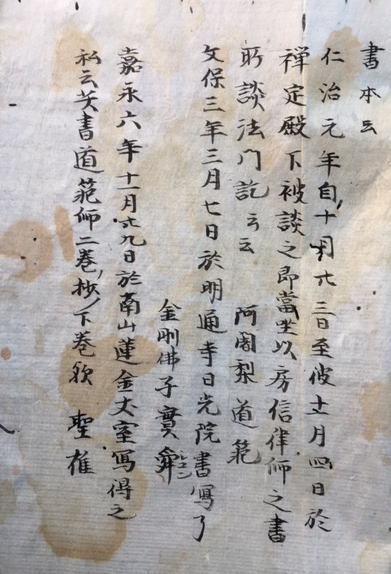 書本云
仁治元年自十月廿三日至彼十一月四日於
禅定殿下被談之即當坐以房信律師之書
所談法門訖云云 阿闍梨道範
文保三年三月七日於明通寺日光院書寫了
金剛佛子實舜
嘉永六年十一月廿九日於南山蓮金丈室寫得之
私云茨書道範師二巻抄ノ下巻歟 聖雄